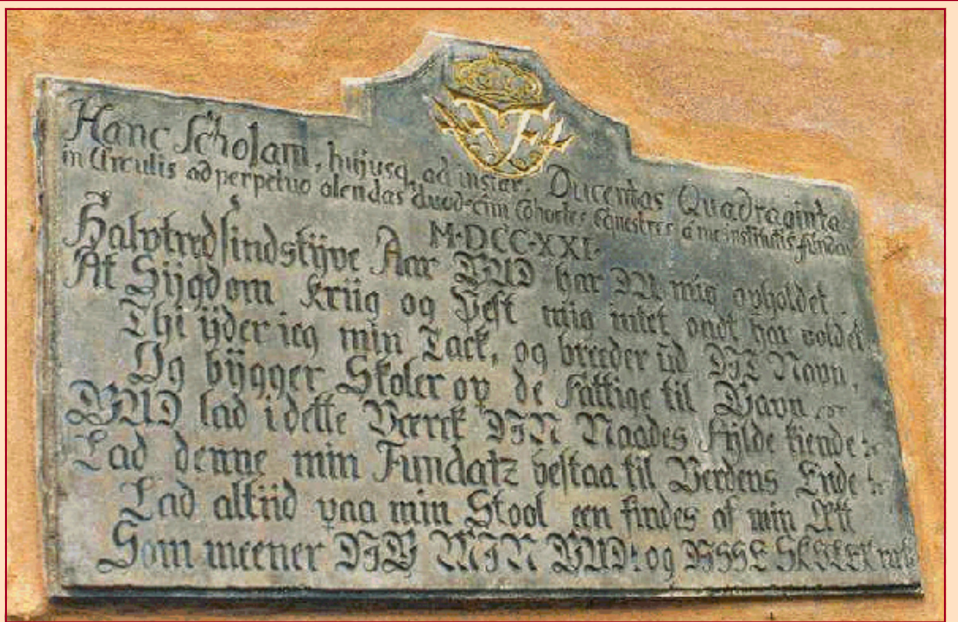 F4
Hanc Scholam, hujusq, ad instar, Ducentas Quadraginta
in Circulis ad perpetuo alendas duodecim Cohortes Equestres a me institutis fundavi
M·DCC·XXI·
Halvtredsindstÿve Aar GUD har DU mig opholdet
At Sÿgdom Kriig og Pest mig intet ondt har voldet
Thi ÿder ieg min Tack, og breeder ud DIT Navn,
Og bÿgger Skoler op de fattige til Gavn
GUD lad i dette Værck DIN Naades fÿlde kiende
Lad denne min Fundatz bestaa til Verdens Ende
Lad altiid paa min Stool een findes af min Ætt
Som meener DIG MIN GUD! og DISSE SKOLER rætt